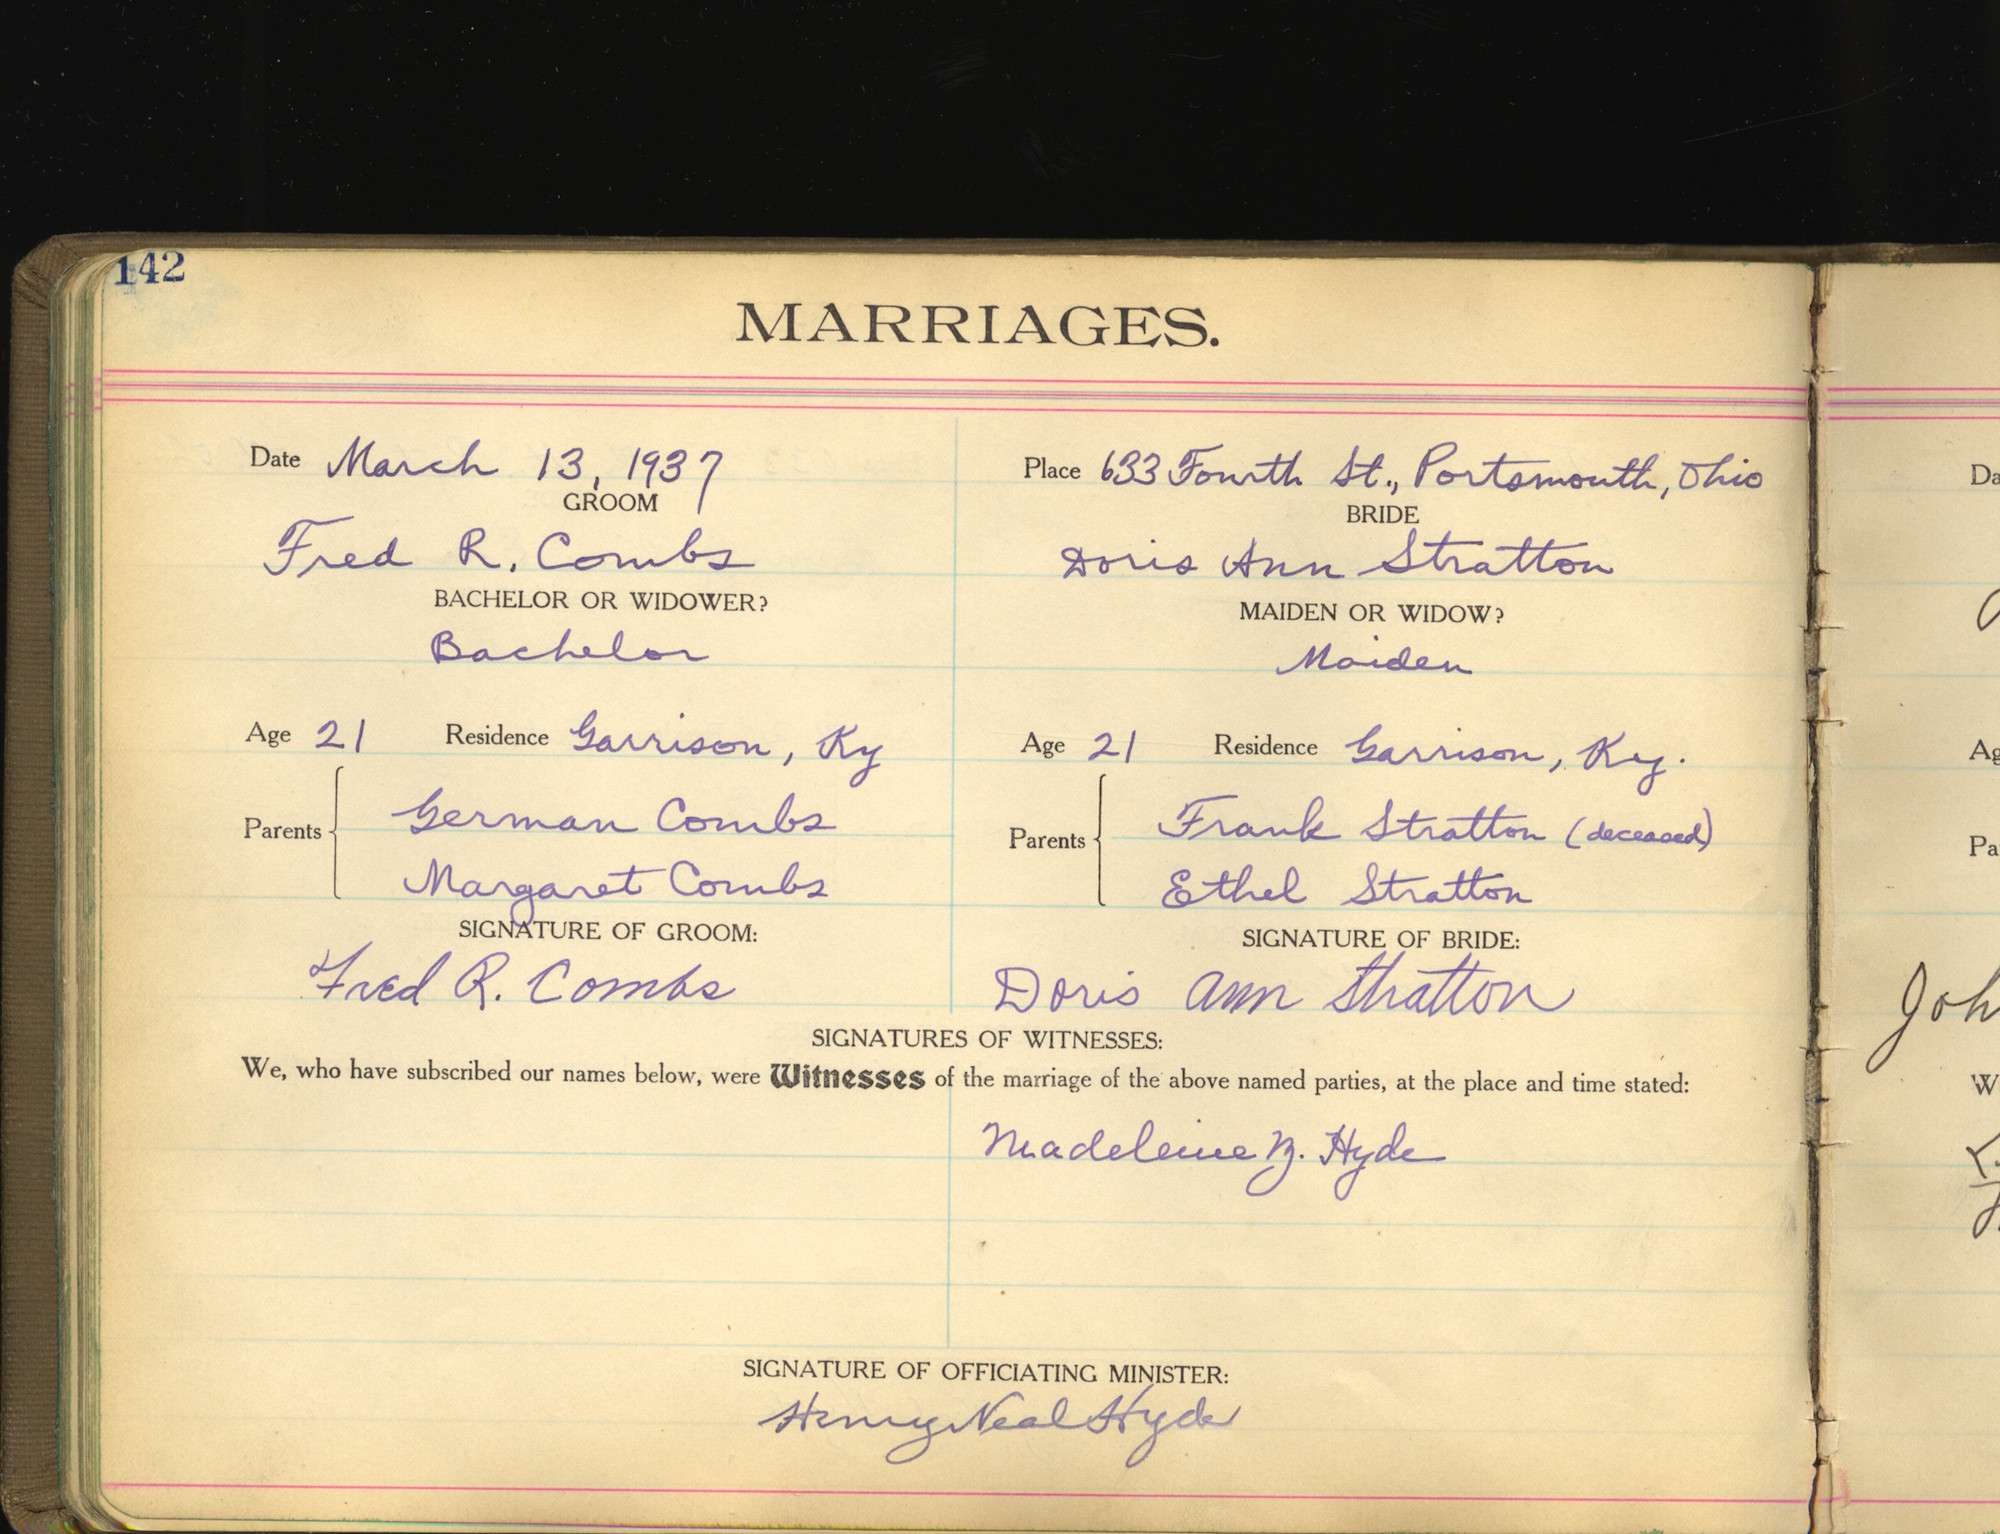 142
MARRIAGES.
Date March 13, 1937 Place 633 Fourth St., Portsmouth, Ohio
GROOM BRIDE
Fred R. Combs Doris Ann Stratton
BACHELOR OR WIDOWER? MAIDEN OR WIDOW?
Bachelor Maiden
Age 21 Residence Garrison, Ky Age 21 Residence Garrison, Ky.
Parents German Combs Parents Frank Stratton (deceased)
Margaret Combs Ethel Stratton
SIGNATURE OF GROOM: SIGNATURE OF BRIDE:
Fred R. Combs Doris Ann Stratton
SIGNATURES OF WITNESSES:
We, who have subscribed our names below, were Witnesses of the marriage of the above named parties, at the place and time stated:
Madeleine Hyde
SIGNATURE OF OFFICIATING MINISTER:
Henry Neal Hyde
Da
Ag
Pa
Joh
W